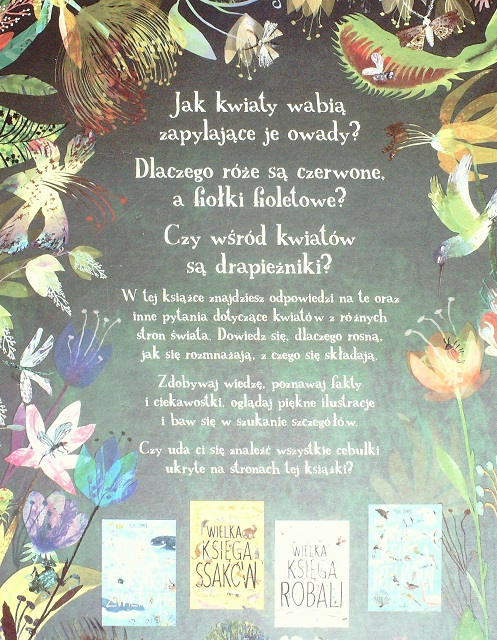 Jak kwiaty wabią
zapylające je owady?
Dlaczego róże są czerwone,
a fiołki fioletowe?
Czy wśród kwiatów
są drapieżniki?
W tej książce znajdziesz odpowiedzi na te oraz
inne pytania dotyczące kwiatów z różnych
stron świata. Dowiedz się, dlaczego rosną,
jak się rozmnażają, z czego się składają.
Zdobywaj wiedzę, poznawaj fakty
i ciekawostki, oglądaj piękne ilustracje
i baw się w szukanie szczegółów.
Czy uda ci się znaleźć wszystkie cebulki
ukryte na stronach tej książki?
WIELKA
KSIĘGA
SSAKÓW
WIELKA
KSIĘGA
ROBALI